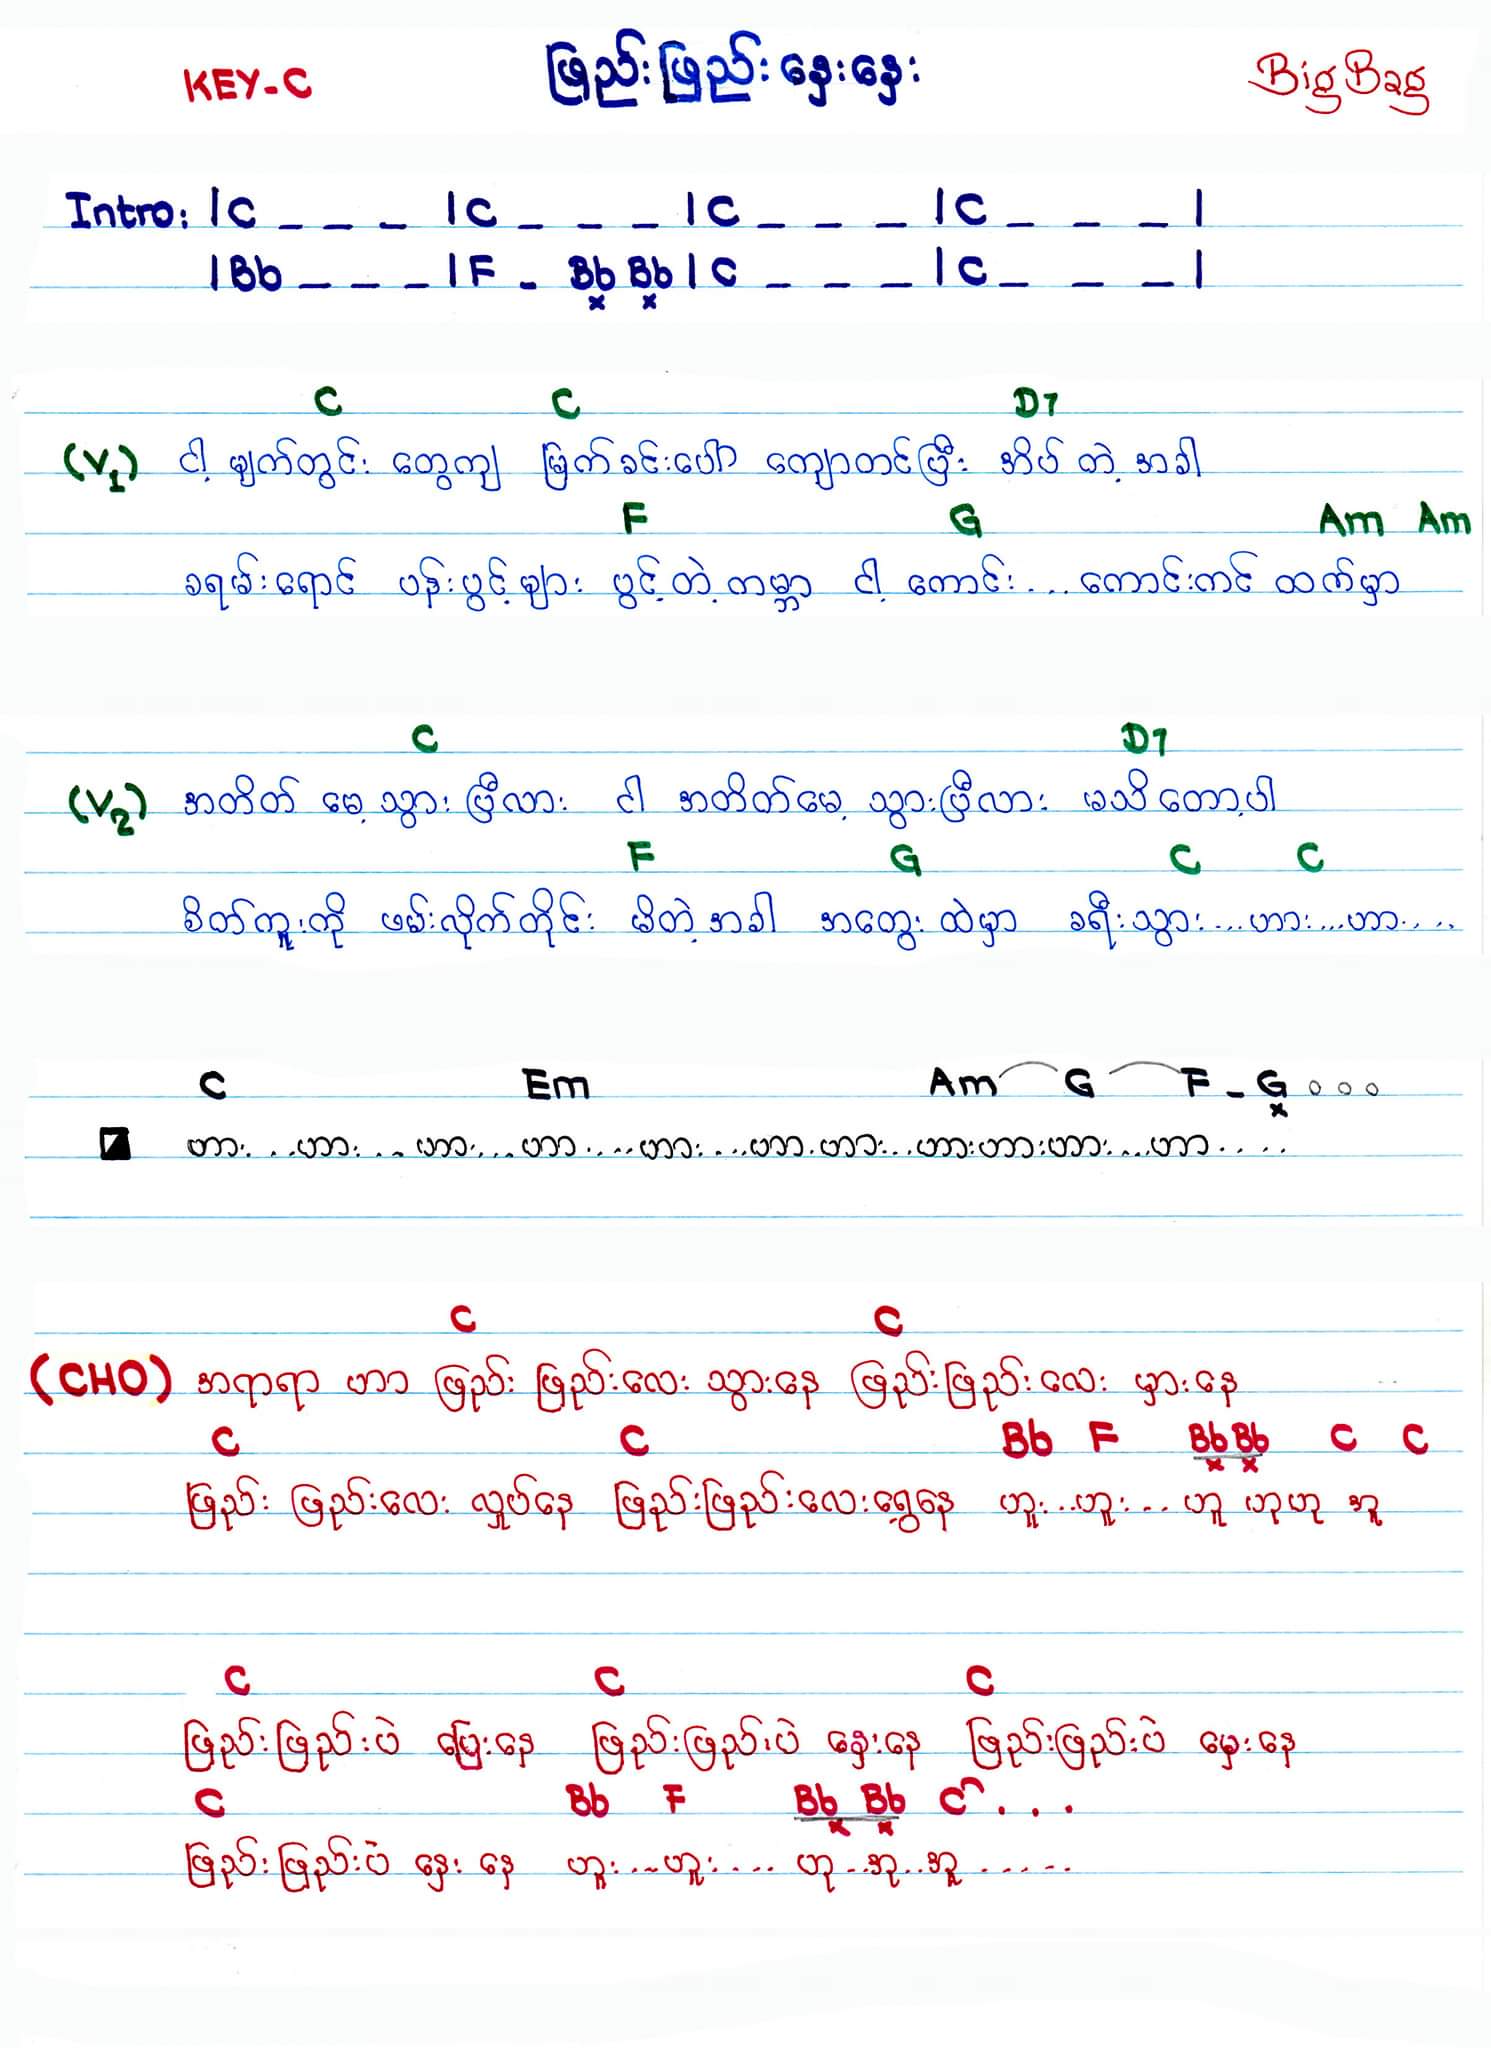 KEY-C ဖြည်းဖြည်းနှေးနှေး BigBag
Intro: | C _ _ _ | C _ _ _ | C _ _ _ | C _ _ _ |
| Bb _ _ _ | F - Bb Bb | C _ _ _ | C _ _ _ |
x x
C C D7
(V1) ငါ့ မျက်တွင်း တွေကျ မြက်ခင်းပေါ် ကျောတင်ပြီး အိပ် တဲ့ အခါ
F G Am Am
ခရမ်းရောင် ပန်းပွင့်များ ပွင့်တဲ့ကမ္ဘာ ငါ့ ကောင်း... ကောင်းကင် ထက်မှာ
C D7
(V2) အတိတ် မေ့သွား ပြီလား ငါ အတိတ်မေ့ သွားပြီလား မသိတော့ပါ
F G C C
စိတ်ကူးကို ဖမ်းလိုက်တိုင်း မိတဲ့အခါ အတွေးထဲမှာ ခရီးသွား...ဟား...ဟာ....
C Em Am G F - G ० ० ०
x
ဟား...ဟား... ဟား...ဟာ....ဟား...ဟာ.ဟား..ဟားဟားဟား...ဟာ....
C C
(CHO) အရာရာ ဟာ ဖြည်း ဖြည်းလေး သွားနေ ဖြည်းဖြည်းလေး မှားနေ
C C Bb F Bb Bb C C
x x
ဖြည်း ဖြည်းလေး လှုပ်နေ ဖြည်းဖြည်းလေးရွေ့နေ ဟူး...ဟူး... ဟူ ဟုဟု အူ
C C C
ဖြည်းဖြည်းပဲ ပြေးနေ ဖြည်းဖြည်းပဲ နှေးနေ ဖြည်းဖြည်းပဲ မှေးနေ
C Bb F Bb Bb C ...
x x
ဖြည်းဖြည်းပဲ နှေး နေ ဟူး...ဟူး.... ဟု..အု..အူ.....